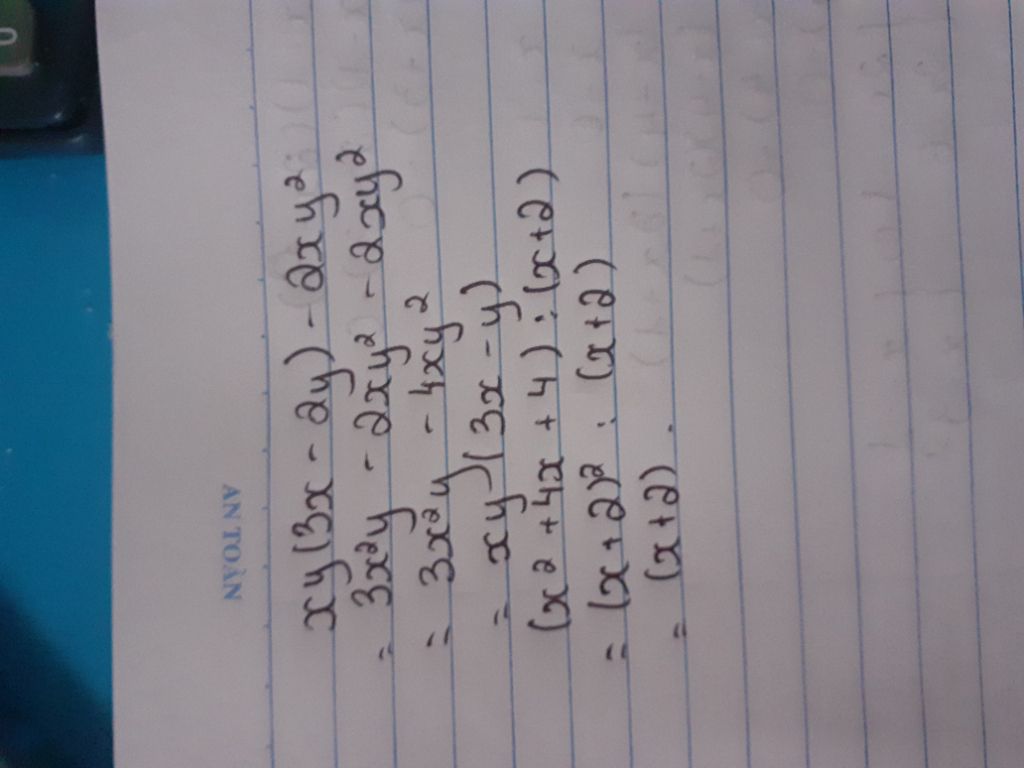 AN TOÀN
xy(3x - 2y) - 2xy²
= 3x²y - 2xy² - 2xy²
= 3x²y - 4xy²
= xy(3x - y)
(x² + 4x + 4) : (x+2)
= (x+2)² : (x+2)
= (x+2).